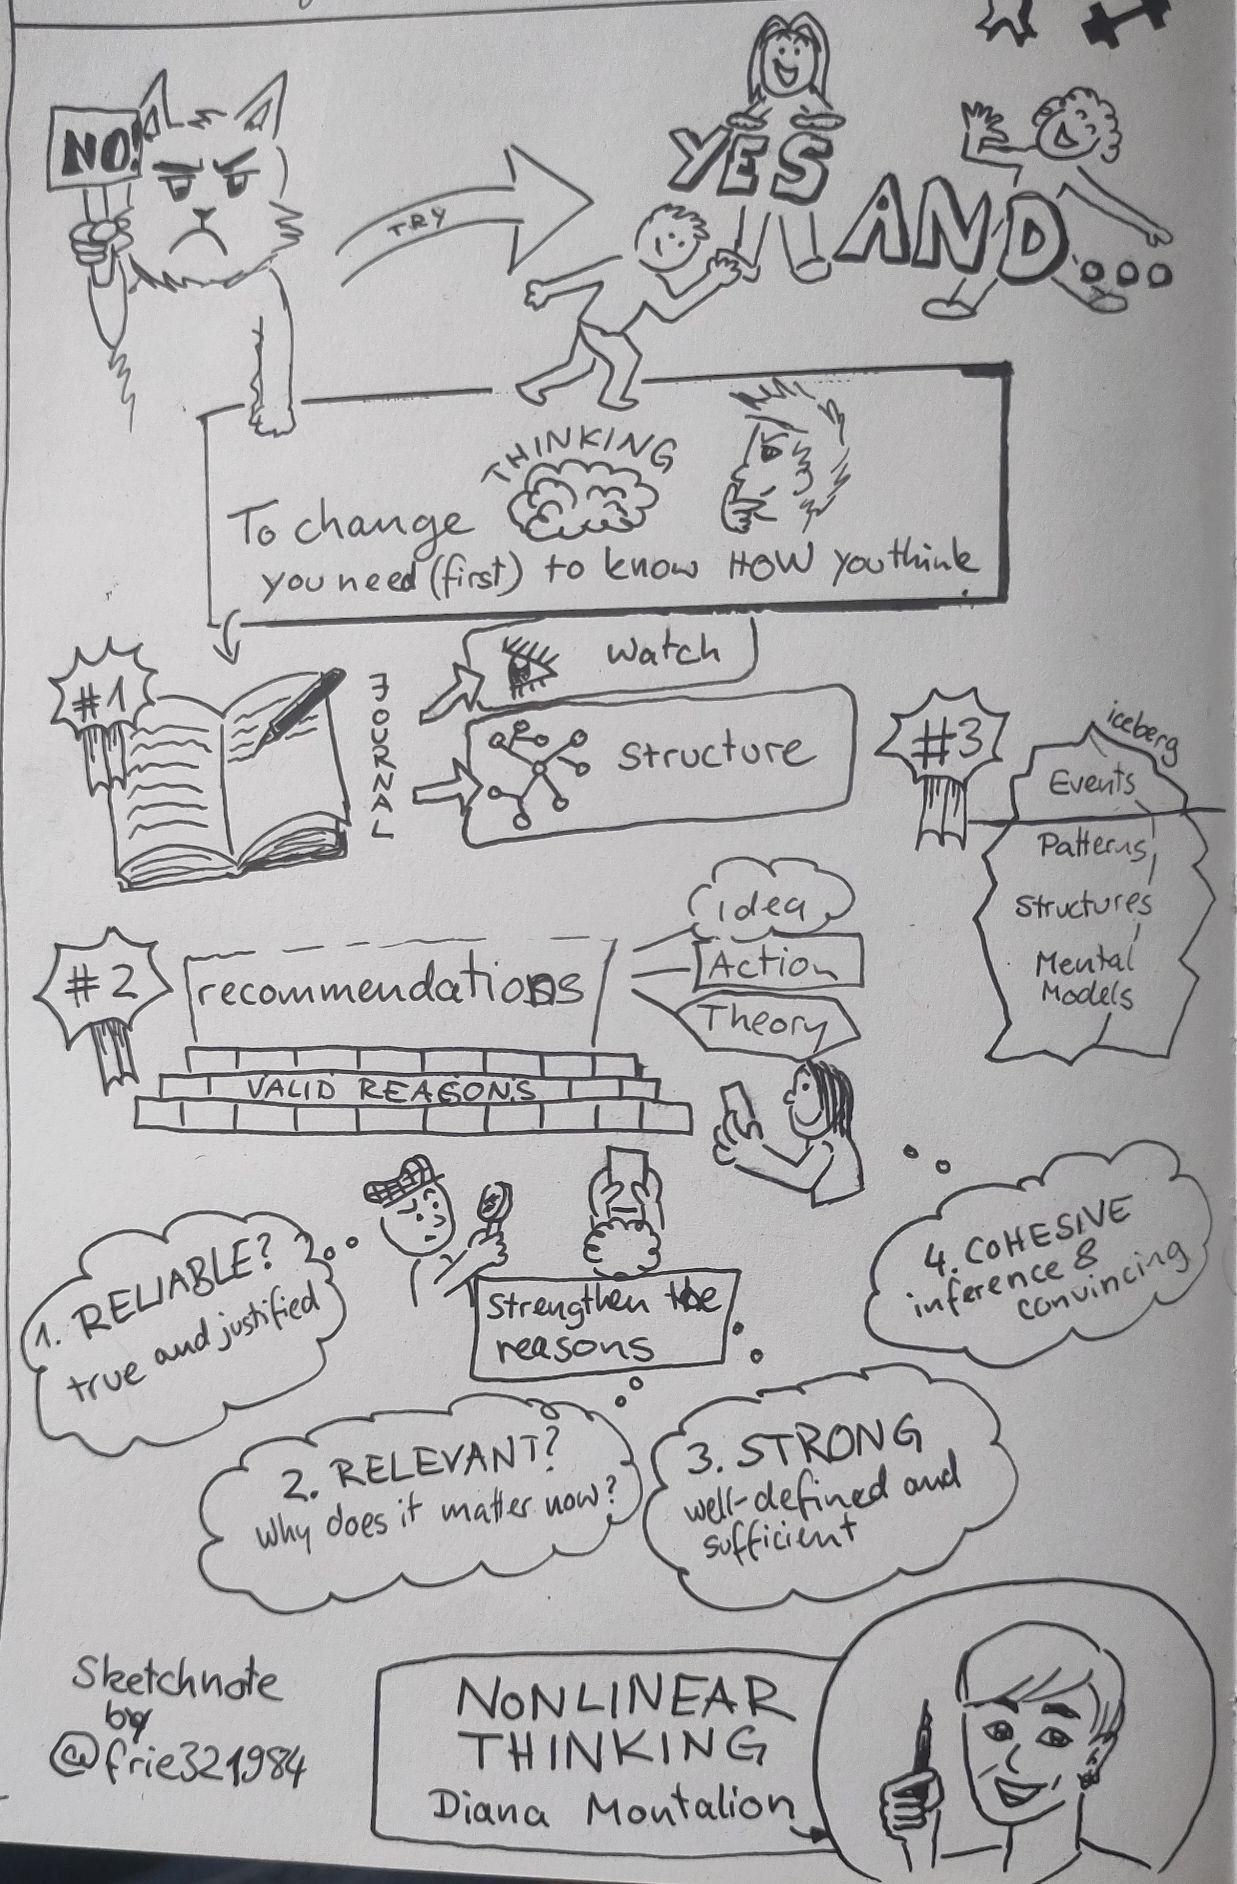 NO!
TRY
YES
AND...
THINKING
To change
you need (first) to know HOW you think
#1
JOURNAL
watch
structure
#3
iceberg
Events
Patterns
Structures
Mental
Models
#2
recommendations
Idea
Action
Theory
VALID REASONS
Strengthen the
reasons
1. RELIABLE?
true and justified
2. RELEVANT?
Why does it matter now?
3. STRONG
well-defined and
sufficient
4. COHESIVE
inference &
convincing
Sketchnote
by
@frie321984
NONLINEAR
THINKING
Diana Montalion